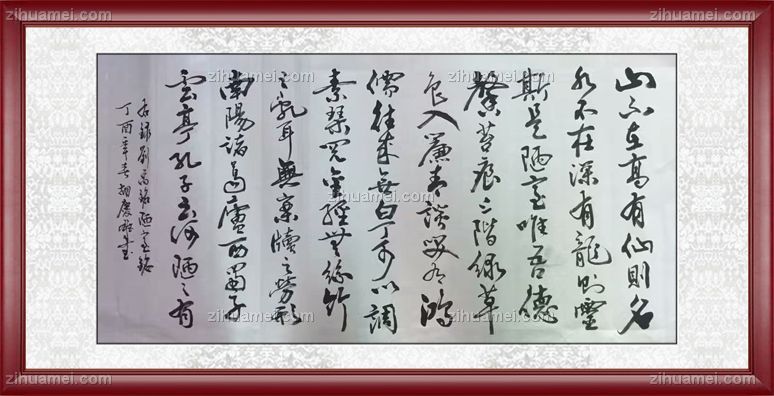 zihuamei.com
zihuamei.com
zihuamei.com
zihuamei.com
山不在高有仙則名
水不在深有龍則靈
斯是陋室唯吾德
馨苔痕上階綠草
色入簾青談笑有鴻
儒往来無白丁可以調
素琴閲金經無絲竹
之亂耳無案牘之勞形
南陽諸葛廬西蜀子
雲亭孔子云何陋之有
劉禹錫陋室銘
丁酉年春胡慶書
zihuamei.com
zihuamei.com
zihuamei.com
zihuamei.com